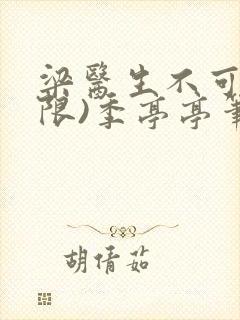 梁医生不可
限)季亭亭
胡倩茹